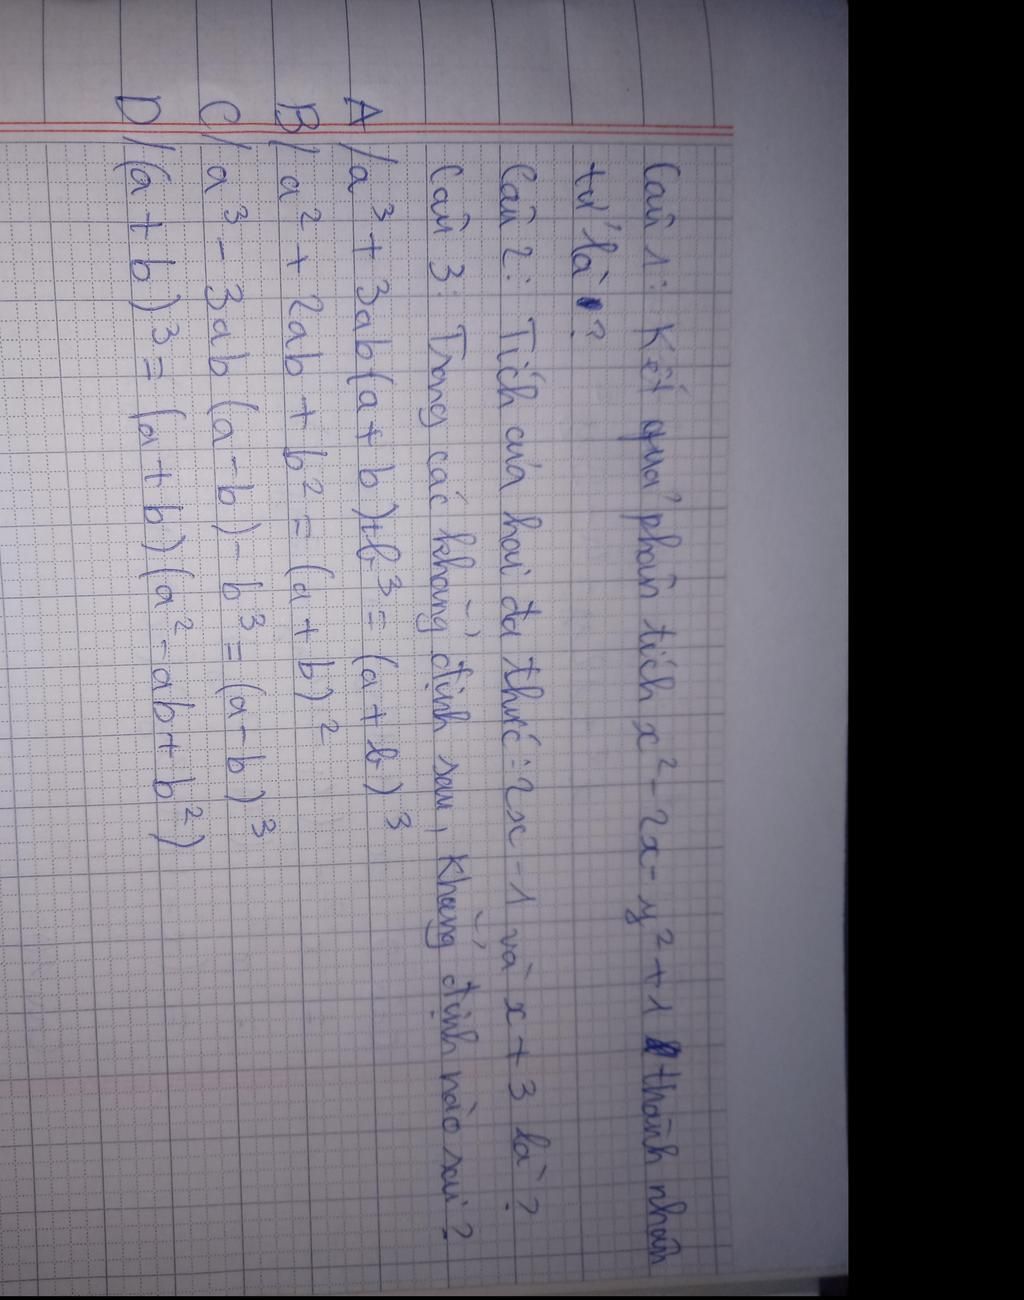 Câu 1: Kết quả phân tích x² - 2x - y² + 1 thành nhân
tử là?
Câu 2: Tích của hai đa thức: 2x - 1 và x + 3 là?
Câu 3: Trong các khẳng định sau, khẳng định nào sai?
A/ a³ + 3ab(a + b) + b³ = (a + b)³
B/ a² + 2ab + b² = (a + b)²
C/ a³ - 3ab (a - b) - b³ = (a - b)³
D/ (a + b)³ = (a + b) (a² - ab + b²)